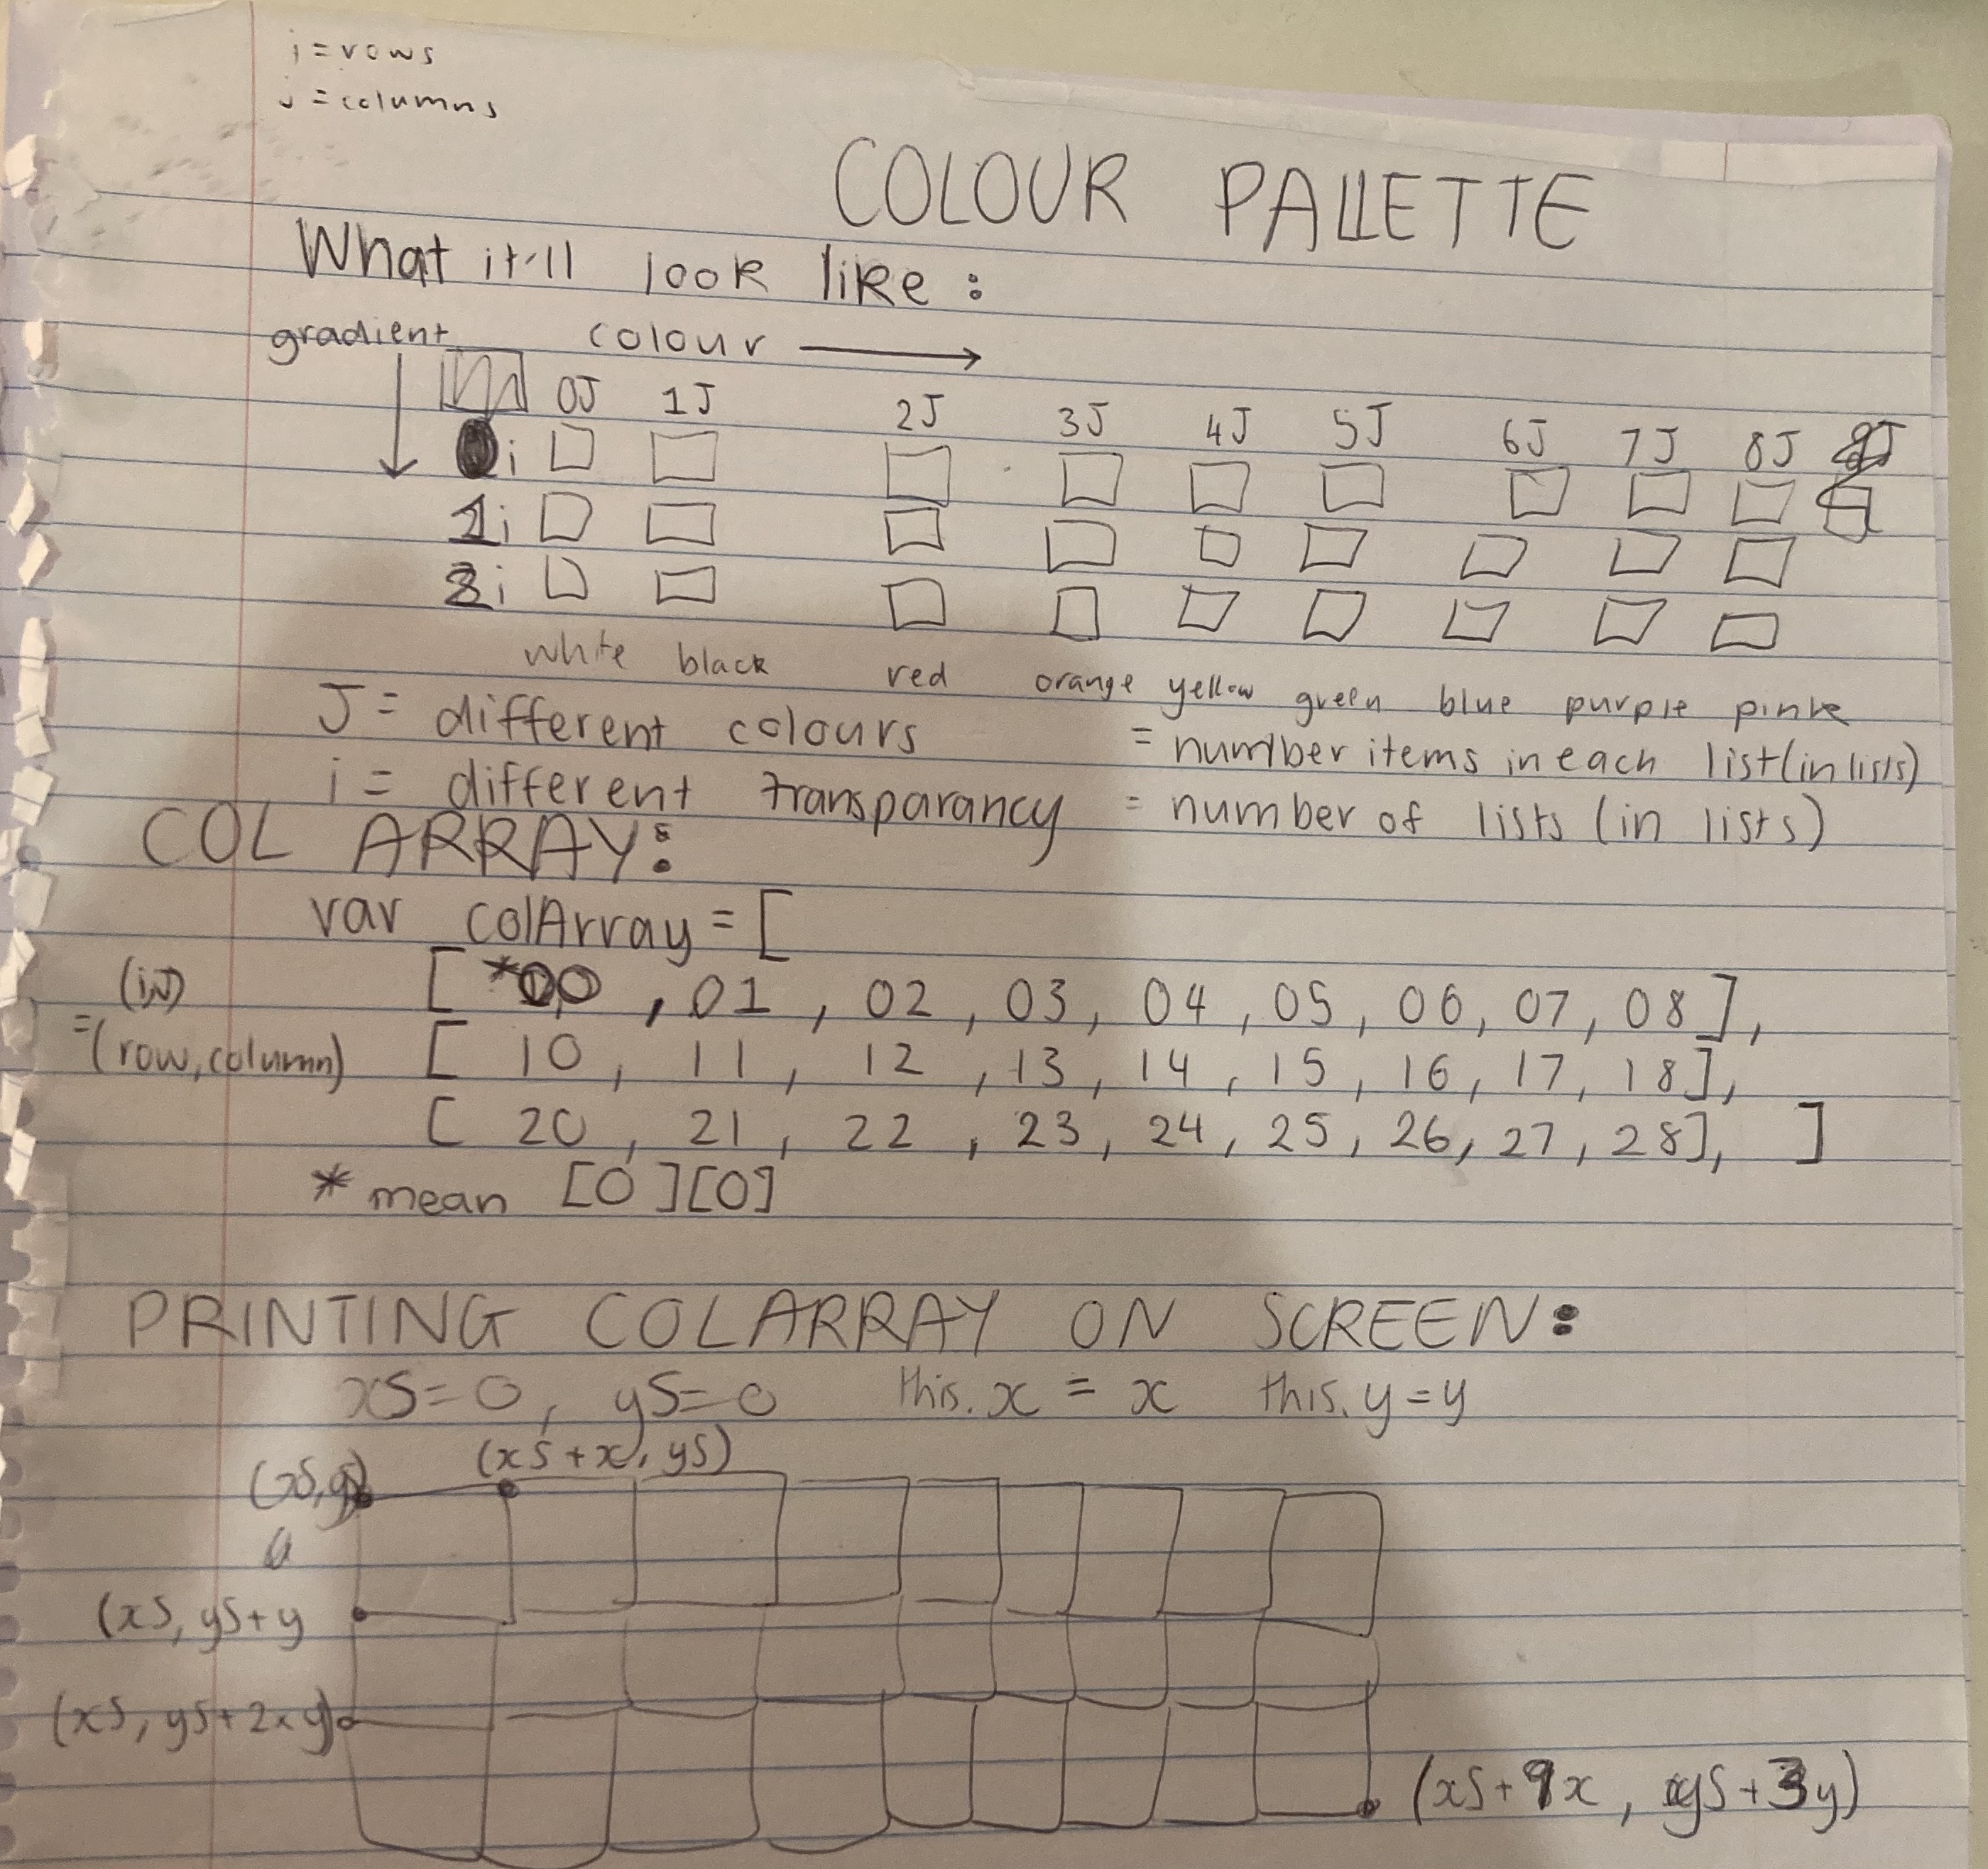 i = rows
j = columns
COLOUR PALLETTE
What it'll look like :
gradient colour
0J 1J 2J 3J 4J 5J 6J 7J 8J
0i
1i
2i
white black red orange yellow green blue purple pink
J = different colours = number items in each list (in lists)
i = different transparancy = number of lists (in lists)
COL ARRAY:
var colArray = [
(iJ) [ *00 , 01 , 02 , 03 , 04 , 05 , 06 , 07 , 08 ],
=(row, column) [ 10 , 11 , 12 , 13 , 14 , 15 , 16 , 17 , 18 ],
[ 20 , 21 , 22 , 23 , 24 , 25 , 26 , 27 , 28 ], ]
* mean [0][0]
PRINTING COLARRAY ON SCREEN:
xS = 0 , yS = 0 this. x = x this. y = y
(xS, yS) (xS + x, yS)
(xS, yS + y
(xS, yS + 2 x y)
(xS + 9x , yS + 3y)